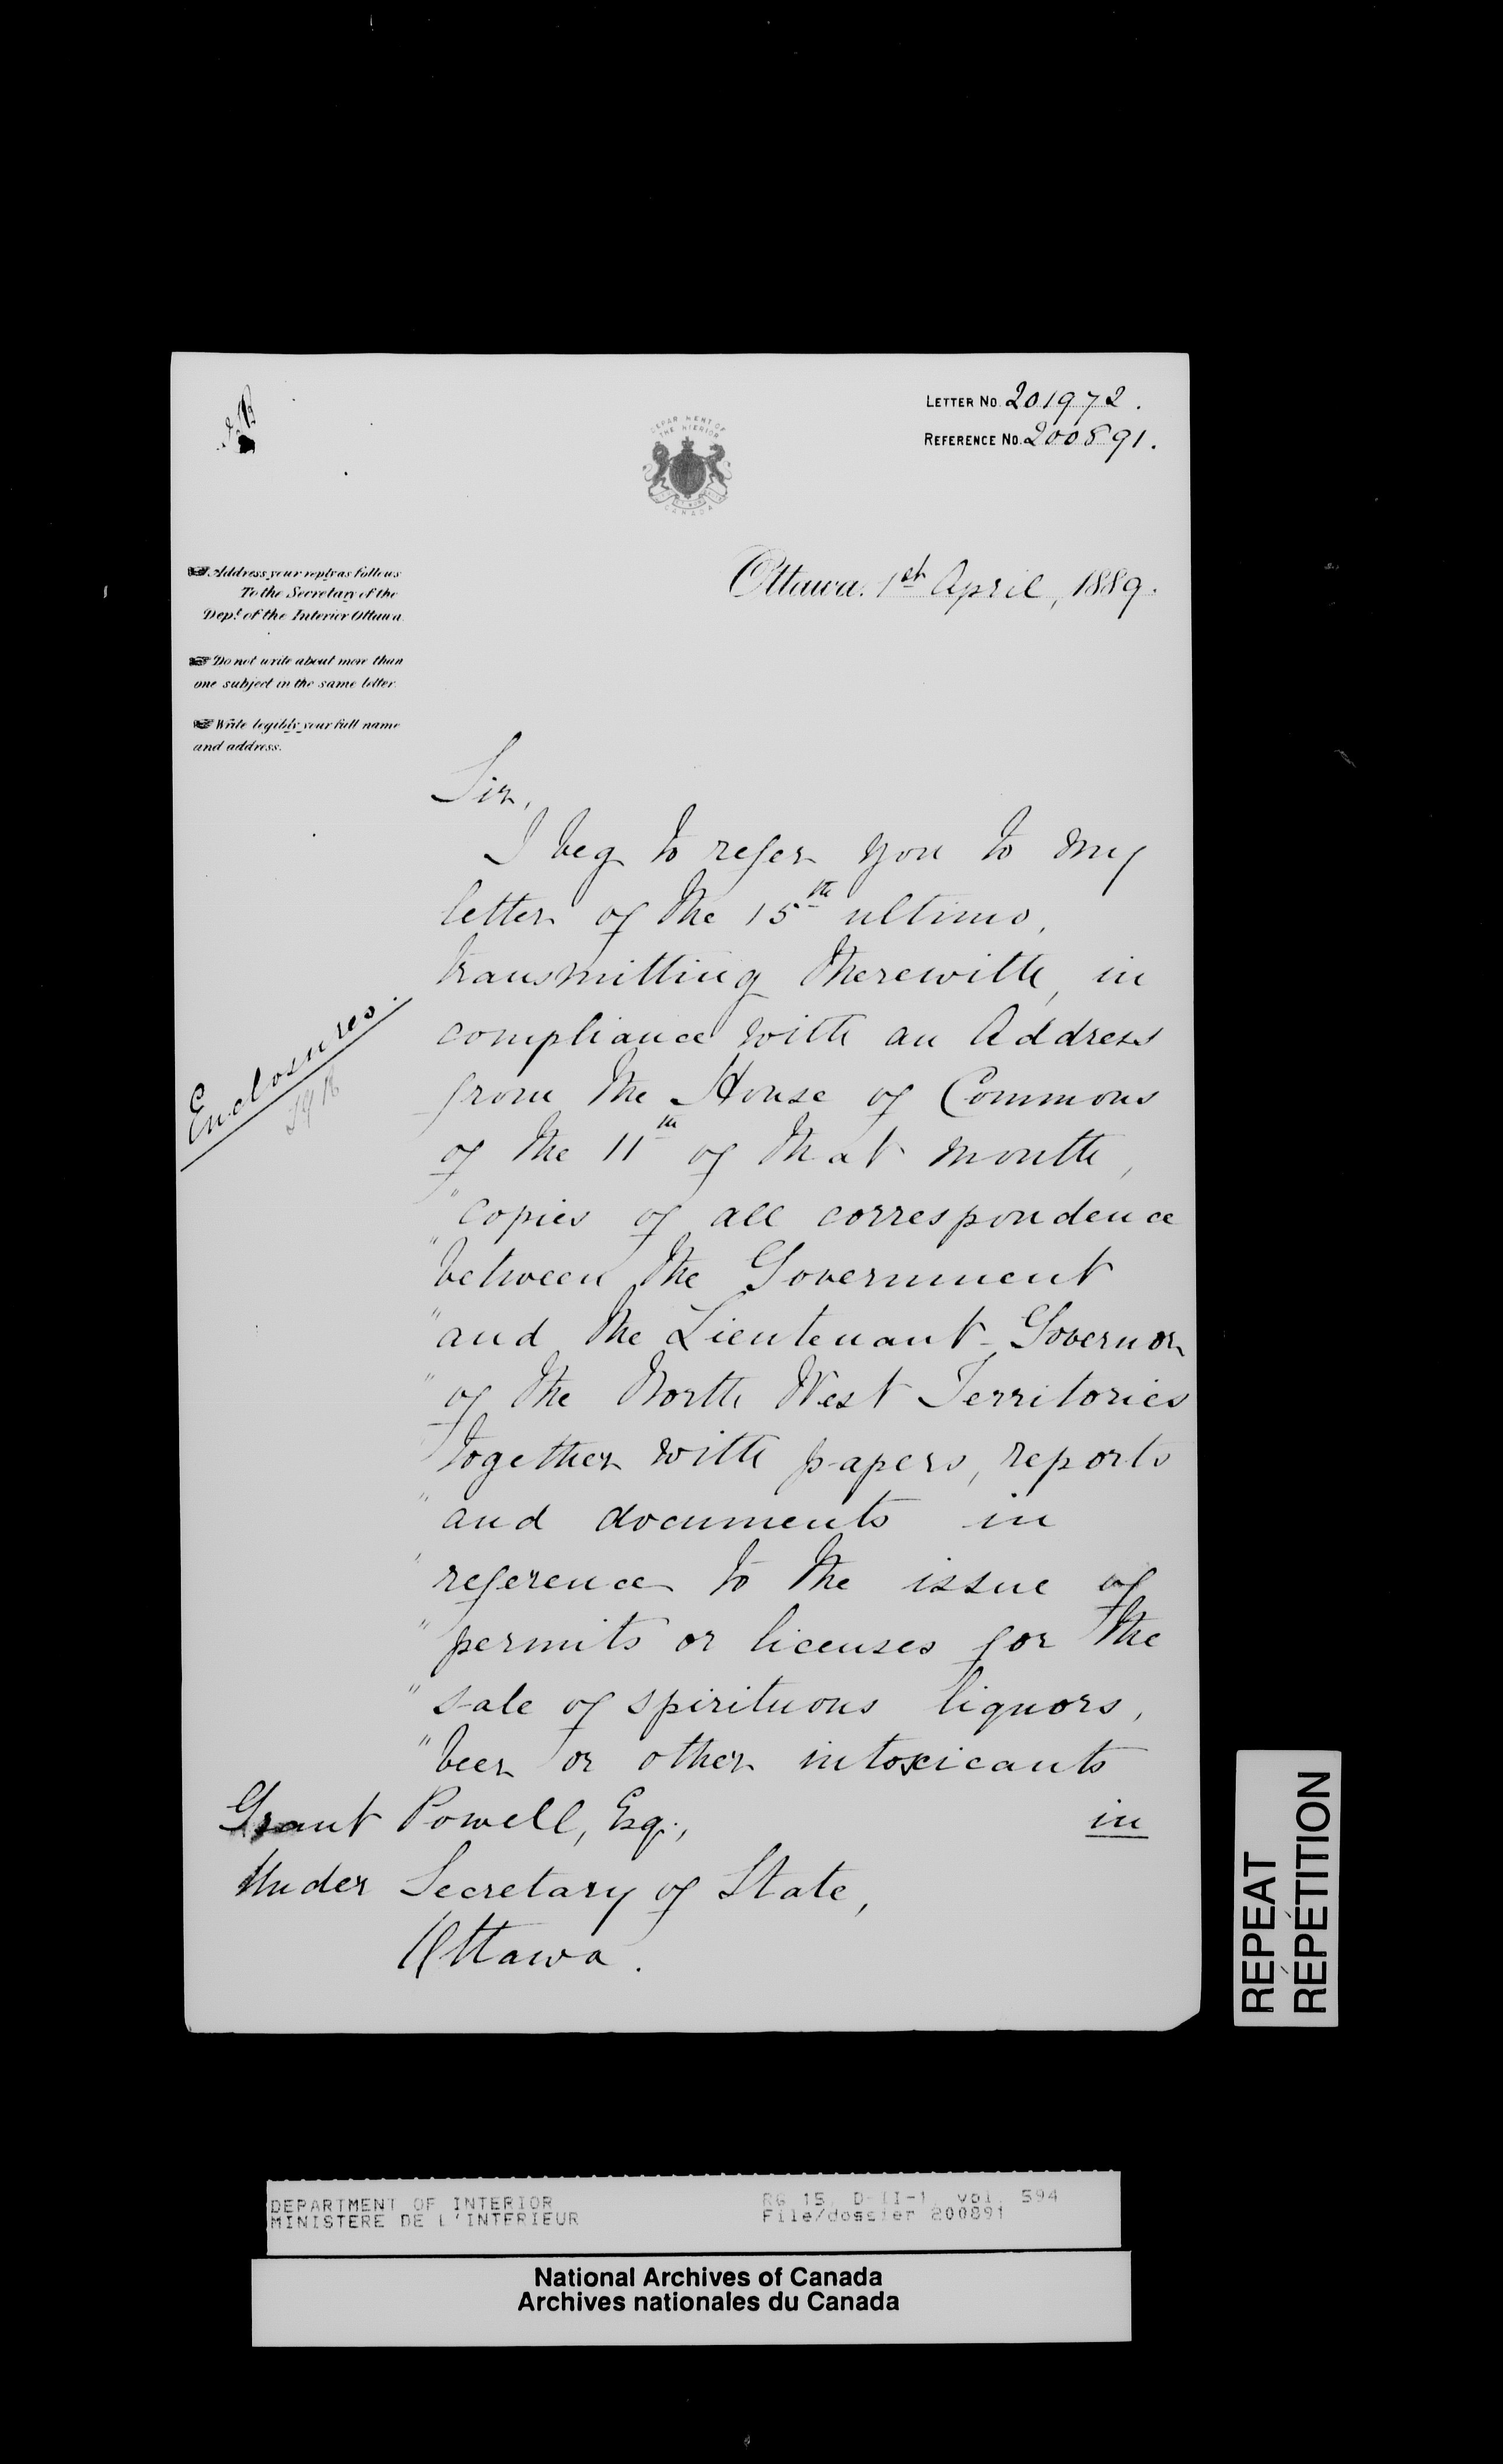 LETTER NO. 201972.
REFERENCE NO. 200891.
DEPARTMENT OF
THE INTERIOR
CANADA
Ottawa. 1st April, 1889.
Address your reply as follows
To the Secretary of the
Dept. of the Interior Ottawa.
Do not write about more than
one subject in the same letter.
Write legibly your full name
and address.
Sir,
I beg to refer you to my
letter of the 15th ultimo,
transmitting therewith, in
compliance with an Address
from the House of Commons
of the 11th of that month,
"copies of all correspondence
"between the Government
"and the Lieutenant-Governor
"of the North West Territories
"together with papers, reports
"and documents in
"reference to the issue of
"permits or licenses for the
"sale of spirituous liquors,
"beer or other intoxicants
in
Enclosures.
Grant Powell, Esq.,
Under Secretary of State,
Ottawa.
REPEAT
RÉPÉTITION
DEPARTMENT OF INTERIOR
MINISTERE DE L'INTERIEUR
RG 15, D-II-1, vol. 594
File/dossier 200891
National Archives of Canada
Archives nationales du Canada